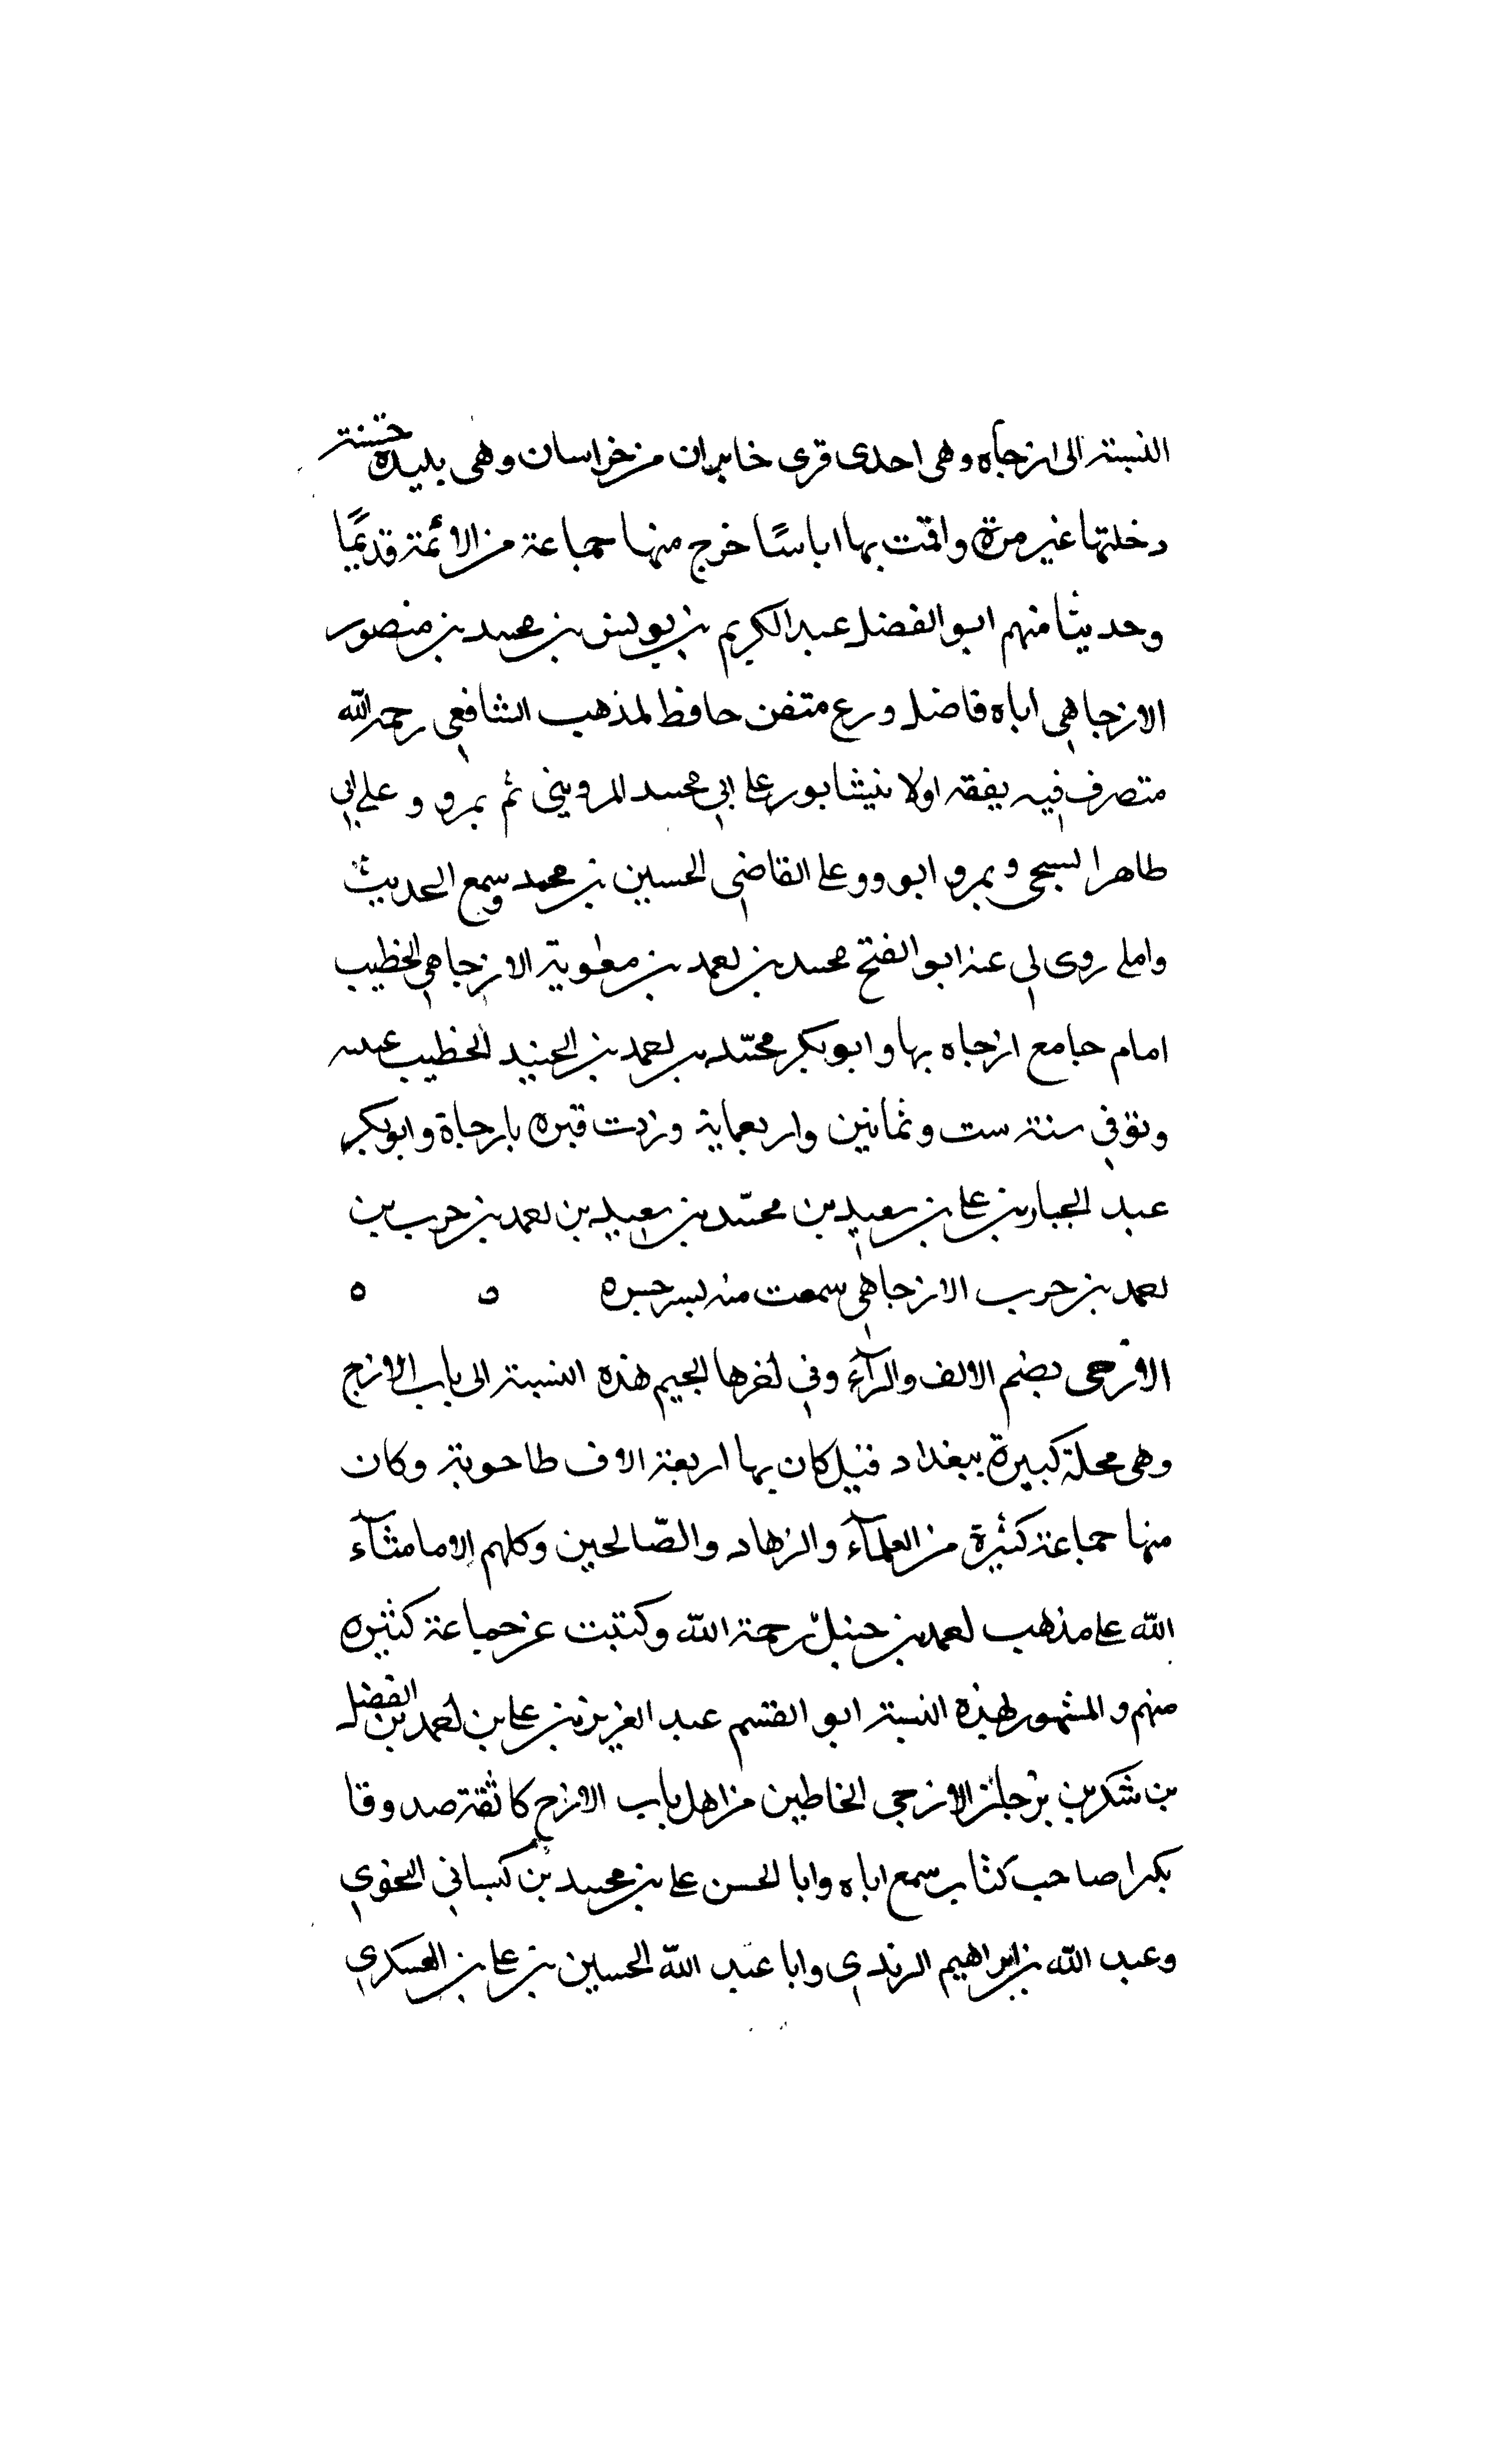 النسبة الى ازجاه وهى احدى قرى خابران من خراسان وهى بليدة حسنة
دخلتها غير مرة واقمت بها اياما خرج منها جماعة من الائمة قديمًا
وحديثا منهم ابو الفضل عبد الكريم بن يونس بن محمد بن منصور
الازجاهي اباه فاضل ورع متفن حافظ لمذهب الشافعي رحمه الله
متصرف فيه يفقه اولا بنيشابور على ابي محمد ثم بمرو وعلى ابي
طاهر السبحى وبمرو على القاضي الحسين بن محمد وسمع الحديث
واملى روى لي عنه ابو الفتح محمد بن احمد بن معاوية الازجاهي الخطيب
امام جامع ازجاه بها وابو بكر محمّد بن احمد بن الجنيد الخطيب
وتوفي سنة ست وثمانين واربعماية وزرت قبره بازجاة وابو بكر
عبد الجبار بن على بن سعيد بن محمّد بن سعيد بن احمد بن حرب بن
احمد بن حرب الازجاهي سمعت منه بسرخس ه ه ه
الازجى بضم الالف والرآء وفي اخرها الجيم هذه النسبة الى باب الازج
وهى محلة كبيرة ببغداد قيل كان بها اربعة الاف طاحونة وكان
منها جماعة كثيرة من العلمآء والزهاد والصّالحين وكلهم الا ما شآء
الله على مذهب احمد بن حنبل رحمة الله وكتبت عن جماعة كثيره
منهم والمشهور لهذه النسبة ابو القسم عبد العزيز بن على بن احمد بن الفضل
بن شكر بن الازجى الخاطين من اهل باب الازج كا ثقة صدوقا
بكرا صاحب كتاب سمع اباه وابا الحسن على بن محمد بن كيساني النحوي
وعبد الله بن ابراهيم الزندي وابا عبد الله الحسين بن على بن العسكري